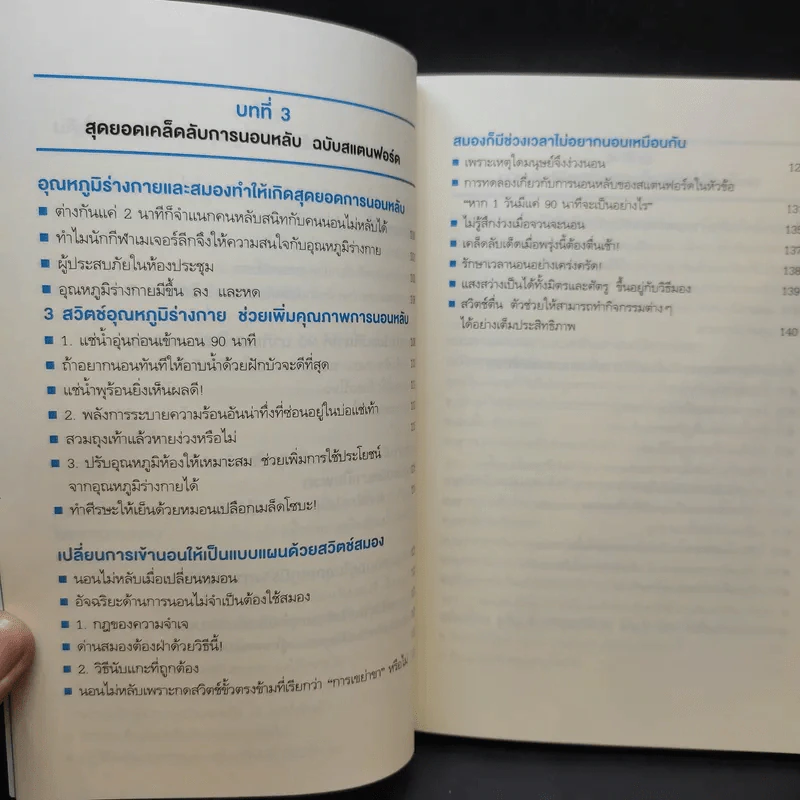 บทที่ 3
สุดยอดเคล็ดลับการนอนหลับ ฉบับสแตนฟอร์ด
อุณหภูมิร่างกายและสมองทำให้เกิดสุดยอดการนอนหลับ
ต่างกันแค่ 2 นาทีก็จำแนกคนหลับสนิทกับคนนอนไม่หลับได้
ทำไมนักกีฬาเมเจอร์ลีกจึงให้ความสนใจกับอุณหภูมิร่างกาย
ผู้ประสบภัยในห้องประชุม
อุณหภูมิร่างกายมีขึ้น ลง และหด
3 สวิตช์อุณหภูมิร่างกาย ช่วยเพิ่มคุณภาพการนอนหลับ
1. แช่น้ำอุ่นก่อนเข้านอน 90 นาที
ถ้าอยากนอนทันทีให้อาบน้ำด้วยฝักบัวจะดีที่สุด
แช่น้ำพุร้อนยิ่งเห็นผลดี!
2. พลังการระบายความร้อนอันน่าทึ่งที่ซ่อนอยู่ในบ่อแช่เท้า
สวมถุงเท้าแล้วหายง่วงหรือไม่
3. ปรับอุณหภูมิห้องให้เหมาะสม ช่วยเพิ่มการใช้ประโยชน์
จากอุณหภูมิร่างกายได้
ทำศีรษะให้เย็นด้วยหมอนเปลือกเมล็ดโซบะ!
เปลี่ยนการเข้านอนให้เป็นแบบแผนด้วยสวิตช์สมอง
นอนไม่หลับเมื่อเปลี่ยนหมอน
อัจฉริยะด้านการนอนไม่จำเป็นต้องใช้สมอง
1. กฎของความจำเจ
ด่านสมองต้องฝ่าด้วยวิธีนี้!
2. วิธีนับแกะที่ถูกต้อง
นอนไม่หลับเพราะกดสวิตช์ขั้วตรงข้ามที่เรียกว่า "การเขย่าขา" หรือไม่
สมองก็มีช่วงเวลาไม่อยากนอนเหมือนกัน
เพราะเหตุใดมนุษย์จึงง่วงนอน
การทดลองเกี่ยวกับการนอนหลับของสแตนฟอร์ดในหัวข้อ
"หาก 1 วันมีแค่ 90 นาทีจะเป็นอย่างไร"
ไม่รู้สึกง่วงเมื่อจวนจะนอน 135
เคล็ดลับเด็ดเมื่อพรุ่งนี้ต้องตื่นเช้า! 137
รักษาเวลานอนอย่างเคร่งครัด! 138
แสงสว่างเป็นได้ทั้งมิตรและศัตรู ขึ้นอยู่กับวิธีมอง 139
สวิตช์ตื่น ตัวช่วยให้สามารถทำกิจกรรมต่างๆ
ได้อย่างเต็มประสิทธิภาพ 140